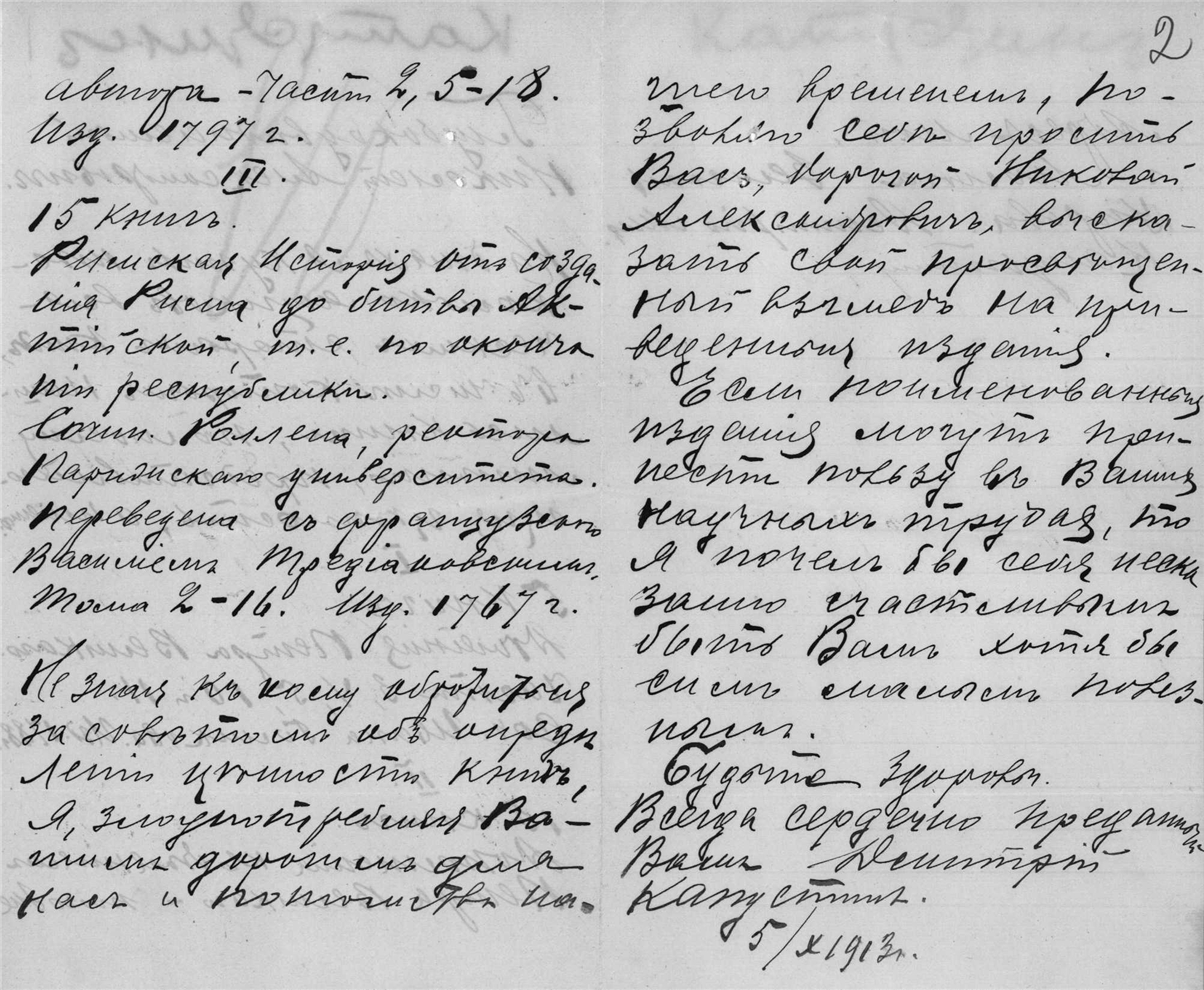 автора – Части 2, 5–18.
Изд. 1797 г.
III.
15 книгъ.
Римская Исторiя отъ созда-
нiя Рима до битвы Ак-
тiйской, т.е. по оконча
нiи республики.
Сочин. Роллена, ректора
Парижскаго университета.
Переведена съ французскаго
Василiемъ Тредiаковскимъ.
Тома 2–16. Изд. 1767 г.
Не зная къ кому обратиться
за совѣтомъ объ опредѣ
ленiи цѣнности книгъ,
я, злоупотребляя Ва–
шимъ дорогимъ для
насъ и потомства на-
2
шего временемъ, по-
зволяю себѣ просить
Васъ, дорогой Николай
Александровичъ, выска-
зать свой просвѣщен-
ный взглядъ на при-
веденныя изданiя.
Если поименованныя
изданiя могутъ при-
нести пользу въ Вашихъ
научныхъ трудахъ, то
я почелъ бы себя неска
занно счастливымъ
быть Вамъ хотя бы
симъ малымъ полез-
нымъ.
Будьте здоровы.
Всегда сердечно преданный
Вамъ Дмитрiй
Капустинъ.
5/X 1913 г.